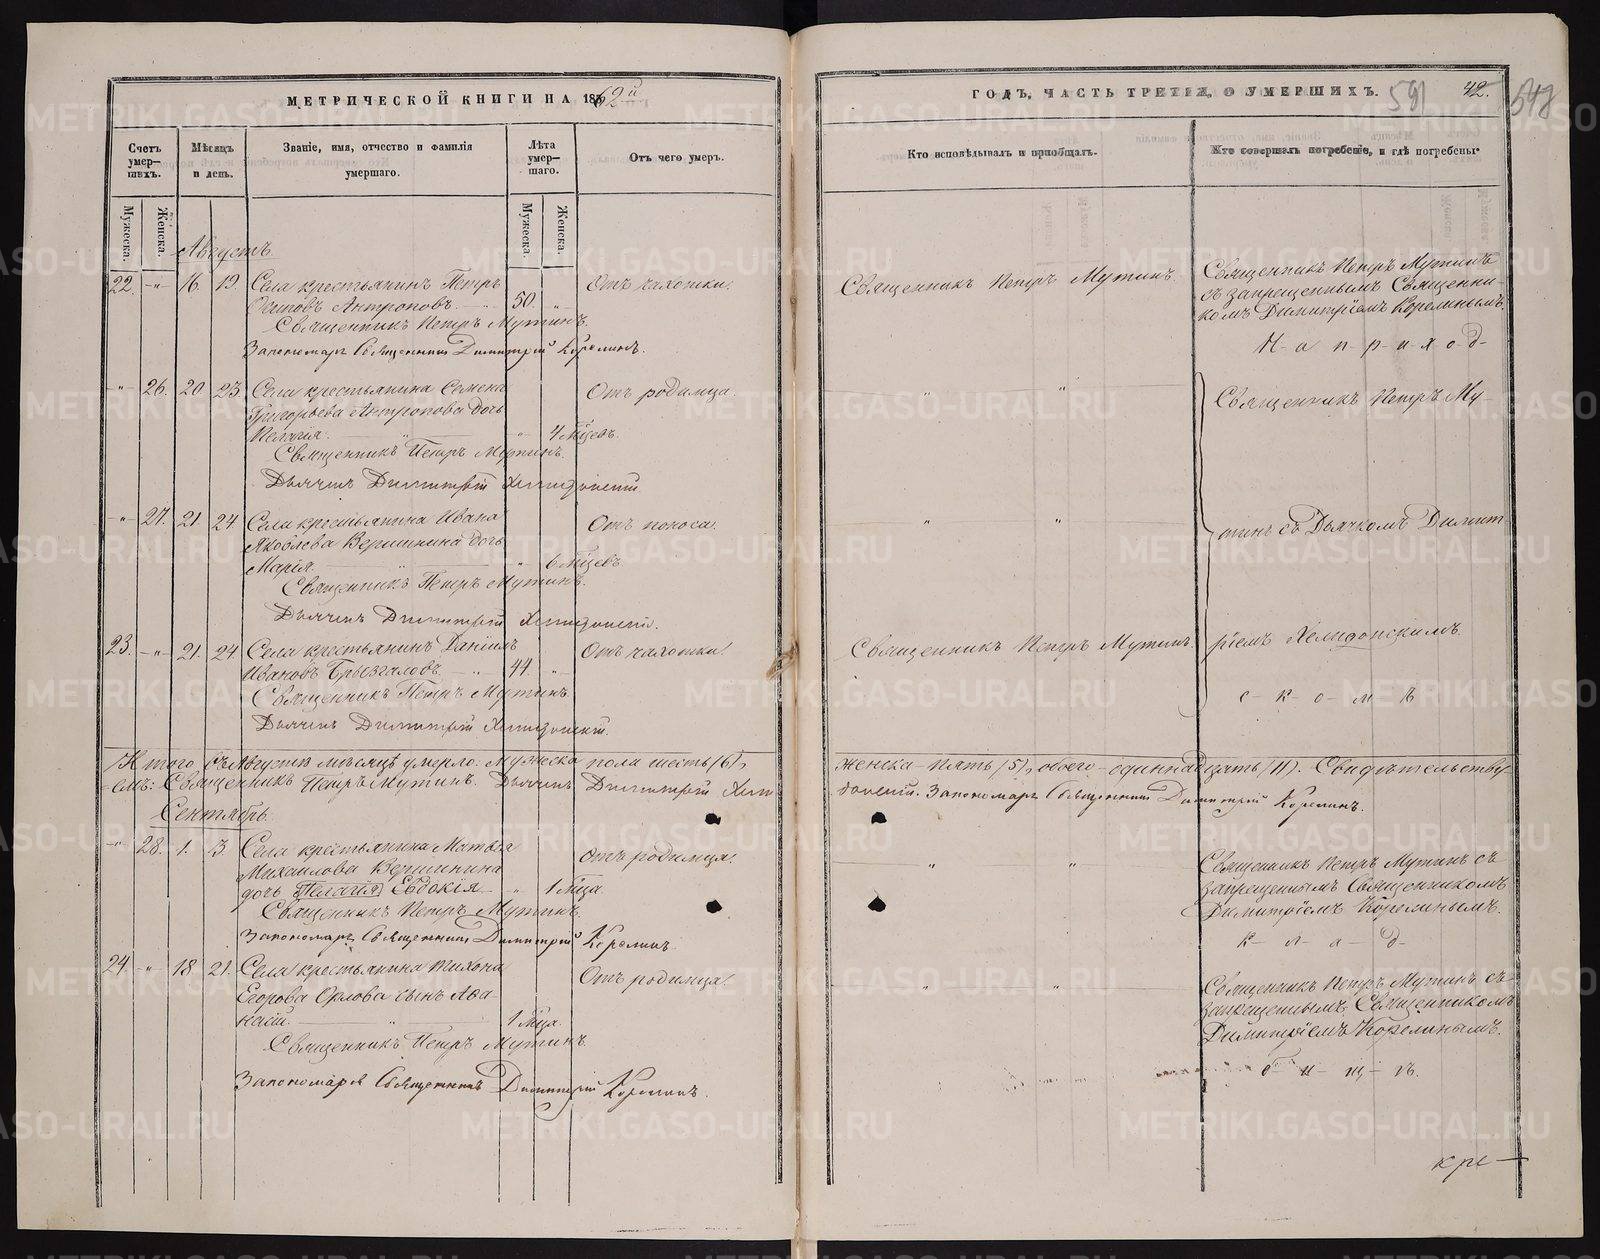 МЕТРИЧЕСКОЙ КНИГИ НА 1862й
Счетъ умер-шихъ.
Мужеска.
Женска.
Мѣсяцъ и день.
Званіе, имя, отчество и фамилія умершаго.
Лѣта умер-шаго.
Мужеска.
Женска.
Отъ чего умеръ.
Августъ
22. -"- 16. 19. Села крестьянинъ Петръ
Осиповъ Антроповъ 50 " Отъ чахотки.
Священникъ Петръ Мутинъ.
Запономаръ Священникъ Димитрій Корелинъ.
-"- 26. 20. 23. Села крестьянина Семена
Григорьева Антропова дочь
Пелагія. " 4 мѣсев. Отъ родимца.
Священникъ Петръ Мутинъ.
Дьячекъ Димитрій Хелидонскій
-"- 27. 21. 24. Села крестьянина Ивана
Яковлева Вершинина дочь
Марія. " 6 мѣсцевъ Отъ поноса.
Священникъ Петръ Мутинъ.
Дьячекъ Димитрій Хелидонскій.
23. -"- 21. 24. Села крестьянинъ Даніилъ
Ивановъ Брызгаловъ 44 " Отъ чахотки.
Священникъ Петръ Мутинъ.
Дьячекъ Димитрій Хелидонскій.
Итого въ Августѣ мѣсяцѣ умерло: Мужеска пола шесть (6),
-емъ: Священникъ Петръ Мутинъ. Дьячекъ Димитрій Хели-
Сентябрь.
-"- 28. 1. 3. Села крестьянина Матвѣя
Михаилова Вершинина
дочь (Пелагія) Евдокія " 1 мѣсца. Отъ родимца.
Священникъ Петръ Мутинъ.
Запономаръ Священникъ Димитрій Корелинъ.
24. -"- 18. 21. Села крестьянина Тихона
Егорова Орлова сынъ Афа-
насій. 1 мѣсца. Отъ родимца.
Священникъ Петръ Мутинъ.
Запономаря Священникъ Димитрій Корелинъ.
ГОДЪ, ЧАСТЬ ТРЕТІЯ, О УМЕРШИХЪ.
591 42. 548
Кто исповѣдывалъ и пріобщалъ.
Кто совершалъ погребеніе, и гдѣ погребены.
Священникъ Петръ Мутинъ.
Священникъ Петръ Мутинъ
съ запрещеннымъ Священни-
комъ Димитріемъ Корелинымъ.
Н-а п-р-и-х-о-д-
" "
Священникъ Петръ Му-
" "
тинъ съ Дьячкомъ Димит-
Священникъ Петръ Мутинъ.
ріемъ Хелидонскимъ.
с-к-о-м-ъ
женска - пять (5), обоего - одиннадцать (11). Свидѣтельству-
донскій. Запономаръ Священникъ Димитрій Корелинъ.
" "
Священникъ Петръ Мутинъ съ
запрещеннымъ Священникомъ
Димитріемъ Корелинымъ.
к-л-а-д-
" "
Священникъ Петръ Мутинъ съ
запрещеннымъ Священникомъ
Димитріемъ Корелинымъ.
б-и-щ-ѣ.
кре-
METRIKI.GASO-URAL.RU